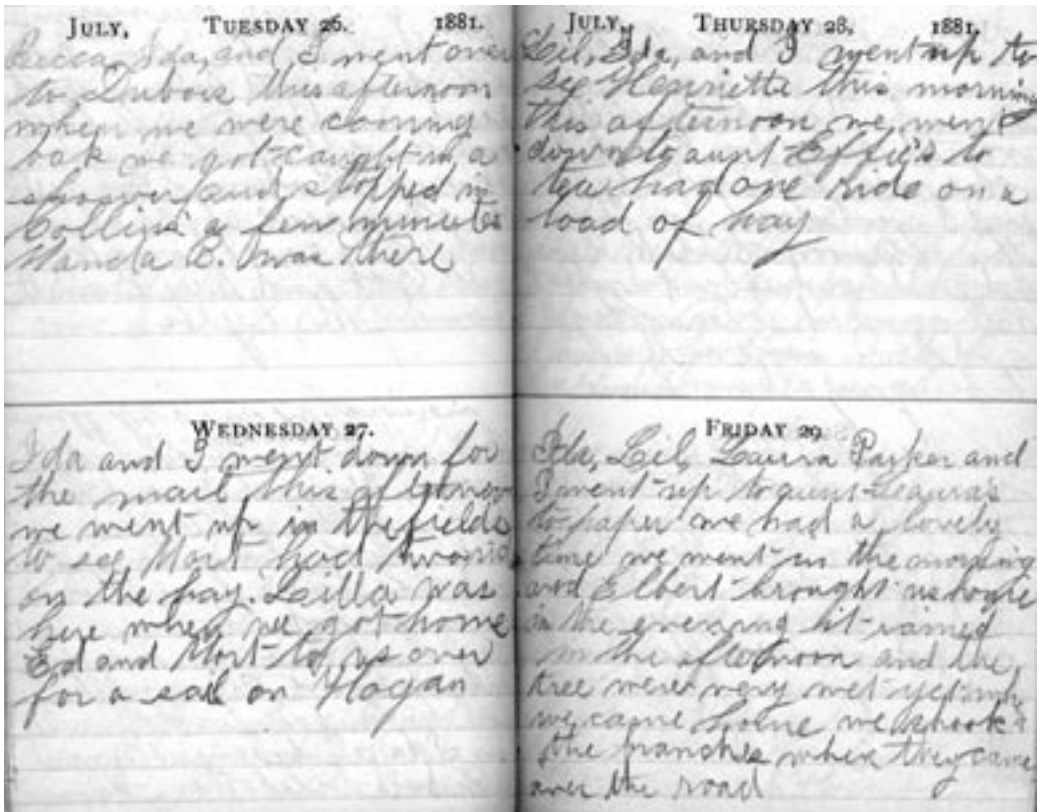 JULY, TUESDAY 26. 1881.
Becca, Ida, and I went over
to Dubois this afternoon
when we were coming
bak we got caught in a
shower and stopped in
Collins a few minutes
Manda B. was there
WEDNESDAY 27.
Ida and I went down for
the mail this afternoon
we went up in the fields
to see Mort had two rides
on the hay. Lilla was
here when we got home
Ed and Mort us over
for a sail on Hogan
JULY, THURSDAY 28, 1881.
Lil, Ida, and I went up to
see Henriette this morning
this afternoon we went
down to aunt Effie's to
tea had one ride on a
load of hay
FRIDAY 29
Ida, Lil, Laura Parker and
I went up to aunt Laura's
to paper we had a lovely
time we went in the morning
and Elbert brought us home
in the evening it rained
in the afternoon and the
tree were very wet yet
we came home we shook
the branches when they came
over the road